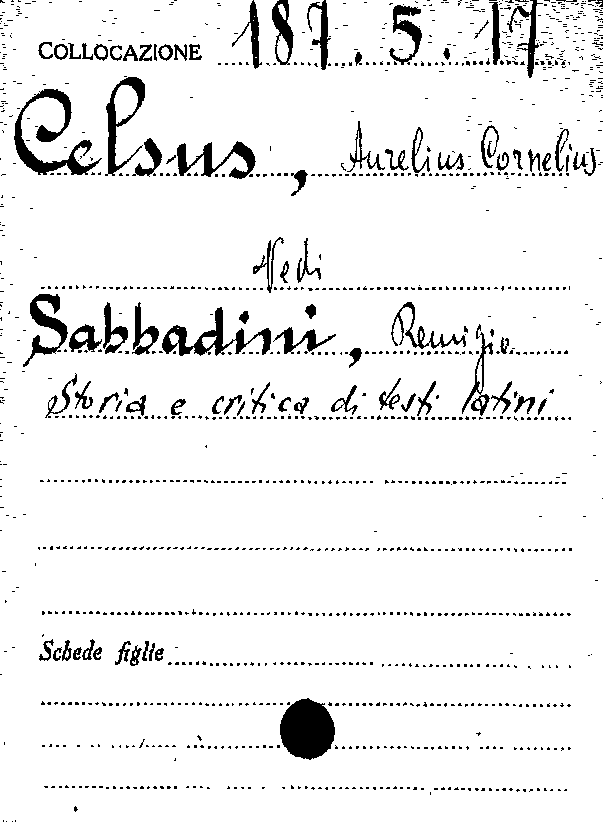 COLLOCAZIONE 187.5.17
Celsus, Aurelius Cornelius
Vedi
Sabbadini, Remigio
Storia e critica di testi latini
Schede figlie